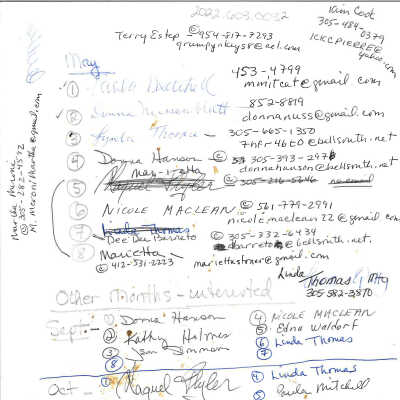 2022.603.0032
Kim Cool
305-484-0379
KCPIERRE@yahoo.com
Terry Estep © 954-817-7293
grumpynkeys8@aol.com
May
453-4799
① Paula Mitchell mmitcat@gmail.com
852-8819
② Donna donnanuss@gmail.com
③ Lynda Thomas - 305-665-1350
@bellsouth.net
④ Donna Hanson © 305 393-2978
donnahanson@bellsouth.net
⑤ Raquel Skyler © 305-216-5646 no email
⑥ NICOLE MACLEAN © 561-779-2991
nicole.maclean22@gmail.com
⑦ Linda Thomas
Dee Dee Barreto © 305-332-6434
dbarreto@bellsouth.net.
⑧ Marietta -
© 412-531-2223 - @gmail.com
© 305-282-4572
@gmail.com
Linda Thomas Mtg
305 582-3870
Other Months - interested
Sept. - ① Donna Hanson
② Kathy Holmes
③ Jan Zimmman
④ NICOLE MACLEAN
⑤ Edna Waldorf
⑥ Linda Thomas
⑦
⑧
Oct - ① Raquel Skyler
④ Linda Thomas
⑤ Paula Mitchell